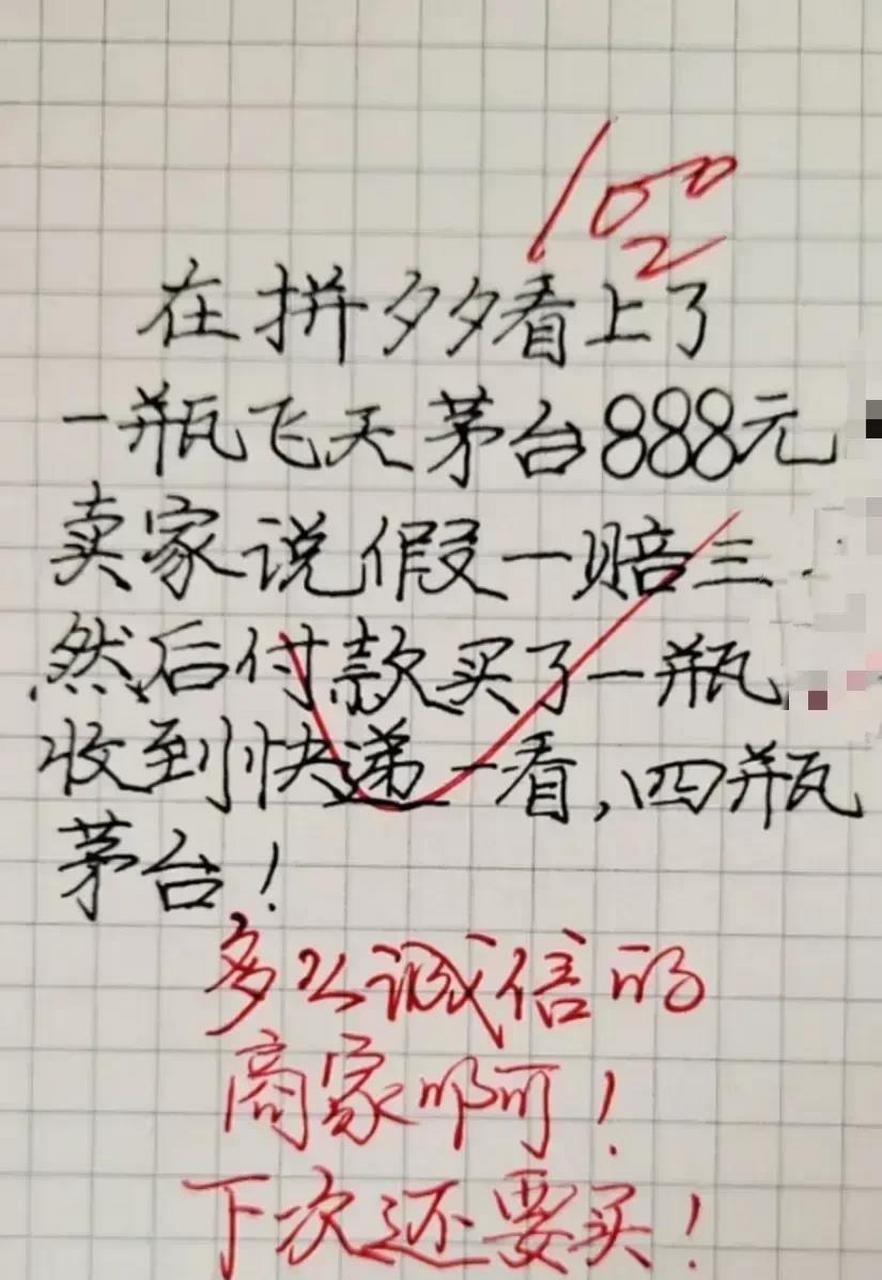 100
在拼夕夕看上了
一瓶飞天茅台888元
卖家说假一赔三.
然后付款买了一瓶
收到快递一看,四瓶
茅台!
多么诚信的
商家啊!
下次还要买!